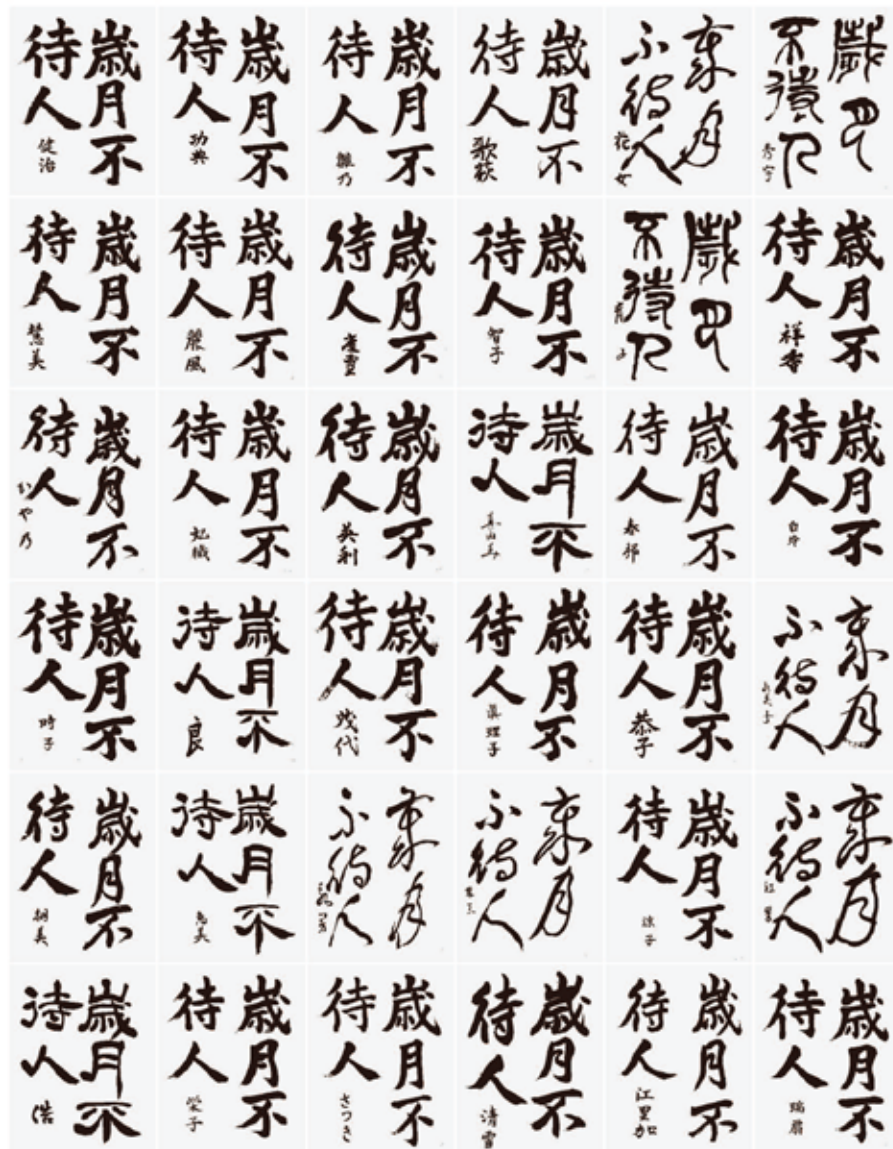 歳月不
待人
健治
歳月不
待人
功典
歳月不
待人
雛乃
歳月不
待人
歌萩
歳月
不待人
歳月
不待人
秀宇
歳月不
待人
慧美
歳月不
待人
麗風
歳月不
待人
歳月不
待人
智子
歳月
不待人
歳月不
待人
祥香
歳月不
待人
かや乃
歳月不
待人
妃織
歳月不
待人
英利
歳月不
待人
真由美
歳月不
待人
春邨
歳月不
待人
歳月不
待人
時子
歳月不
待人
良
歳月不
待人
茂代
歳月不
待人
眞理子
歳月不
待人
恭子
歳月
不待人
歳月不
待人
朝美
歳月不
待人
恵美
歳月
不待人
歳月
不待人
歳月不
待人
涼子
歳月
不待人
歳月不
待人
浩
歳月不
待人
栄子
歳月不
待人
さつき
歳月不
待人
清雪
歳月不
待人
江里加
歳月不
待人